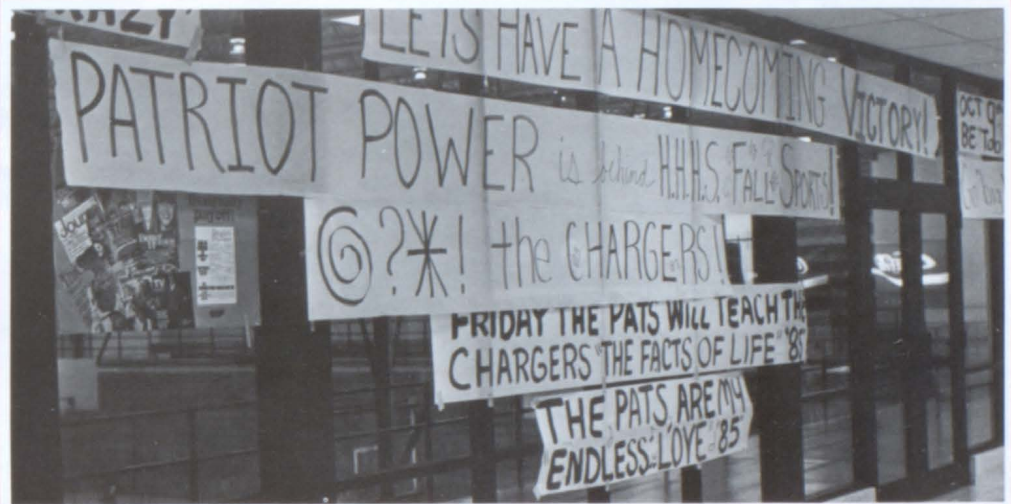 LETS HAVE A HOMECOMING VICTORY!
PATRIOT POWER is behind H.H.H.S. FALL SPORTS!
@?*! the CHARGERS!
FRIDAY THE PATS WILL TEACH THE
CHARGERS "THE FACTS OF LIFE" '85
THE PATS ARE MY
ENDLESS LOVE '85
OCT
BE